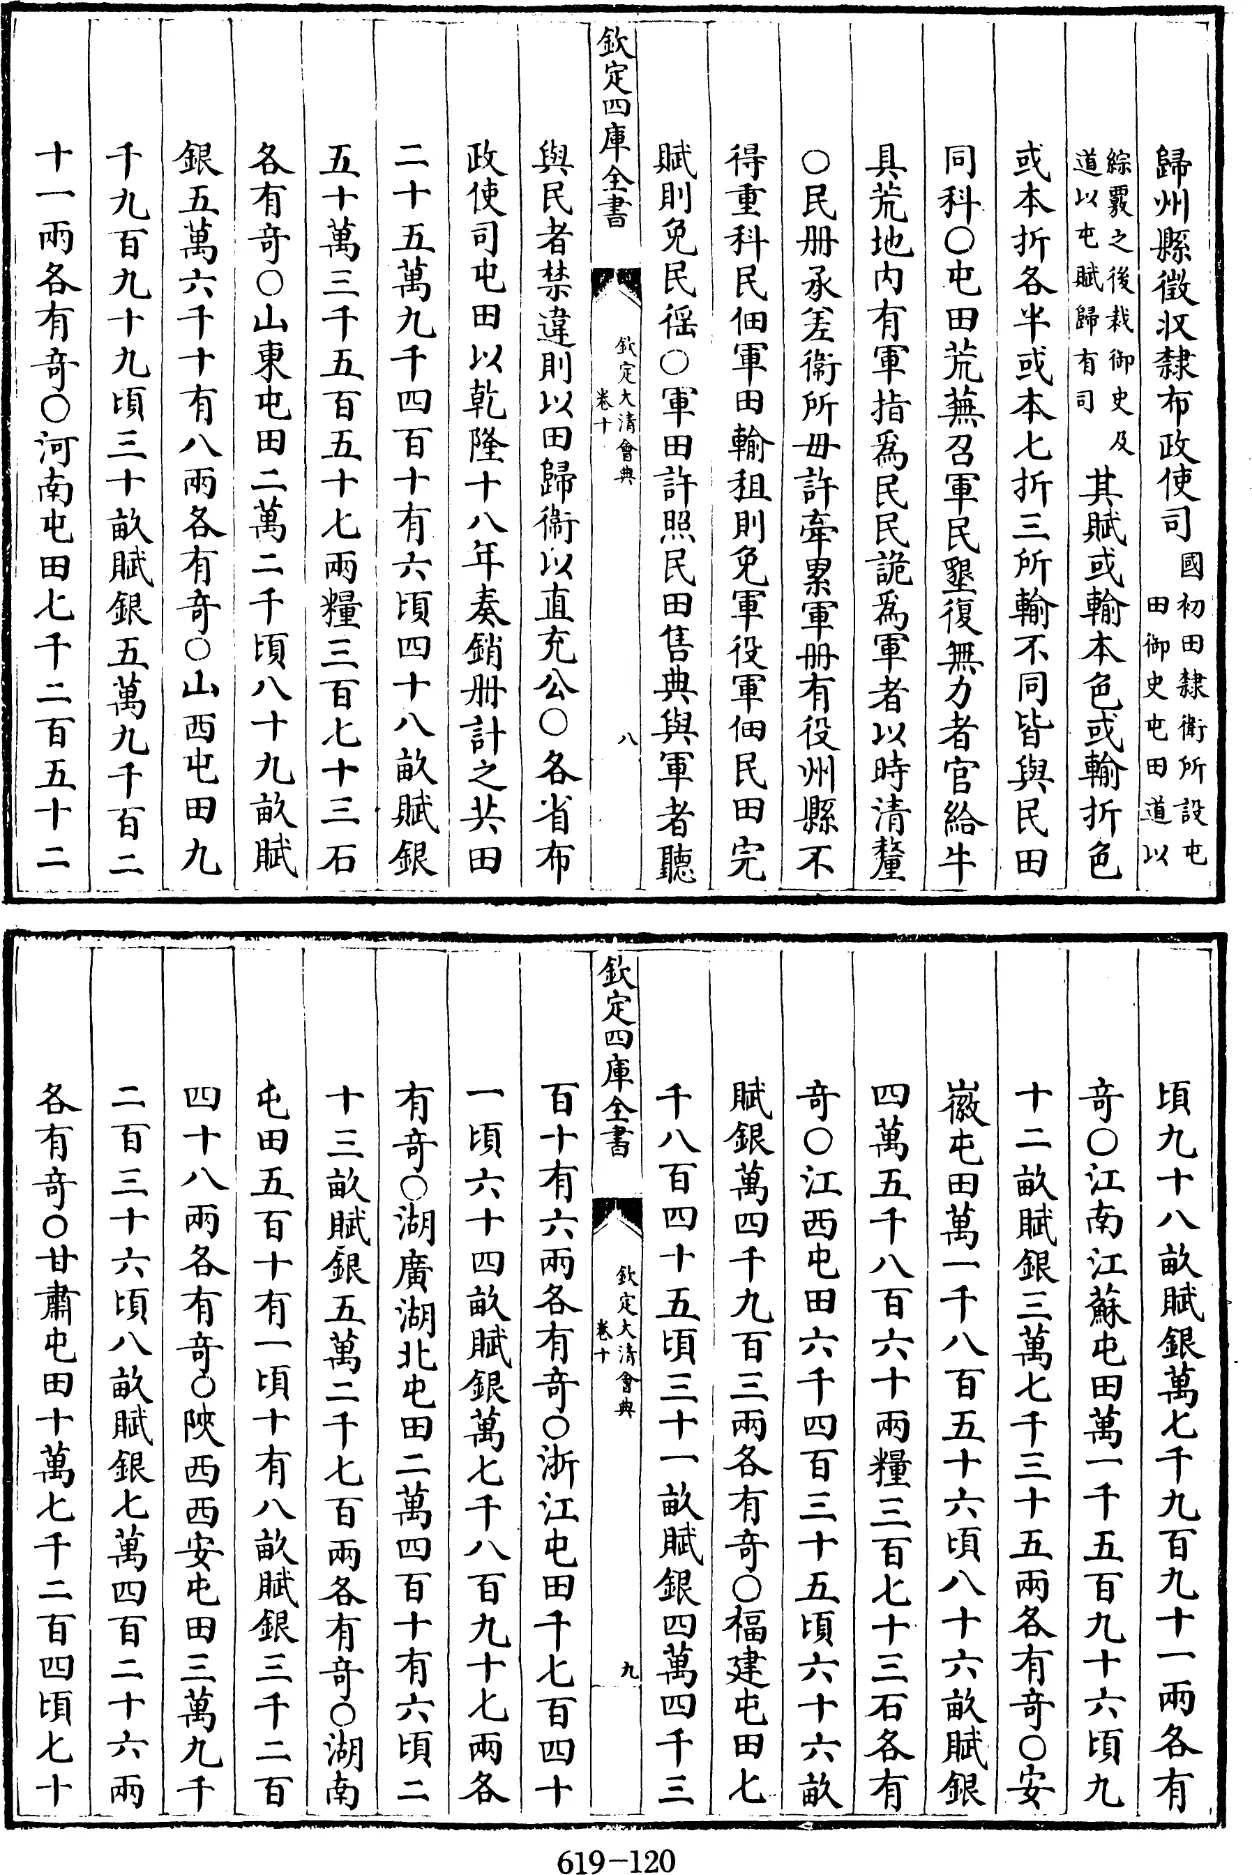 歸州縣徵收隸布政使司國初田隸衛所設屯
田御史屯田道以
綜覈之後裁御史及
道以屯賦歸有司其賦或輸本色或輸折色
或本折各半或本七折三所輸不同皆與民田
同科〇屯田荒蕪召軍民墾復無力者官給牛
具荒地內有軍指爲民民詭爲軍者以時清釐
〇民册承差衛所毋許牽累軍册有役州縣不
得重科民佃軍田輸租則免軍役軍佃民田完
賦則免民徭〇軍田許照民田售典與軍者聽
欽定四庫全書
欽定大清會典
卷十
八
與民者禁違則以田歸衛以直充公〇各省布
政使司屯田以乾隆十八年奏銷册計之共田
二十五萬九千四百十有六頃四十八畝賦銀
五十萬三千五百五十七兩糧三百七十三石
各有奇〇山東屯田二萬二千頃八十九畝賦
銀五萬六千十有八兩各有奇〇山西屯田九
千九百九十九頃三十畝賦銀五萬九千百二
十一兩各有奇〇河南屯田七千二百五十二
頃九十八畝賦銀萬七千九百九十一兩各有
奇〇江南江蘇屯田萬一千五百九十六頃九
十二畝賦銀三萬七千三十五兩各有奇〇安
徽屯田萬一千八百五十六頃八十六畝賦銀
四萬五千八百六十兩糧三百七十三石各有
奇〇江西屯田六千四百三十五頃六十六畝
賦銀萬四千九百三兩各有奇〇福建屯田七
千八百四十五頃三十一畝賦銀四萬四千三
欽定四庫全書
欽定大清會典
卷十
九
百十有六兩各有奇〇浙江屯田千七百四十
一頃六十四畝賦銀萬七千八百九十七兩各
有奇〇湖廣湖北屯田二萬四百十有六頃二
十三畝賦銀五萬二千七百兩各有奇〇湖南
屯田五百十有一頃十有八畝賦銀三千二百
四十八兩各有奇〇陝西西安屯田三萬九千
二百三十六頃八畝賦銀七萬四百二十六兩
各有奇〇甘肅屯田十萬七千二百四頃七十
619-120